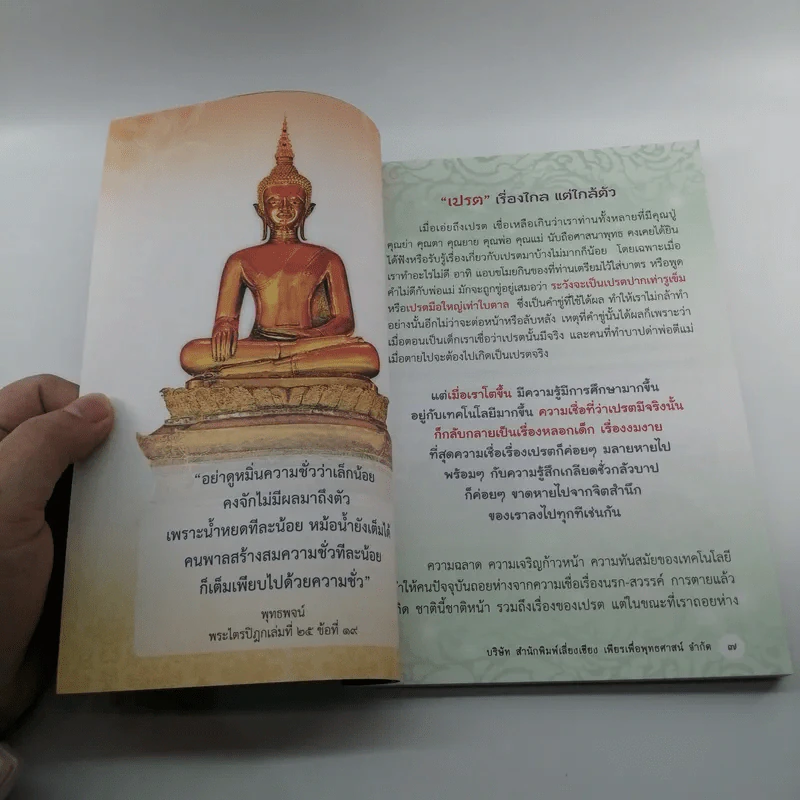 “อย่าดูหมิ่นความชั่วว่าเล็กน้อย
คงจักไม่มีผลมาถึงตัว
เพราะน้ำหยดทีละน้อย หม้อน้ำยังเต็มได้
คนพาลสร้างสมความชั่วทีละน้อย
ก็เต็มเพียบไปด้วยความชั่ว”
พุทธพจน์
พระไตรปิฎกเล่มที่ ๒๕ ข้อที่ ๑๙
“เปรต” เรื่องไกล แต่ใกล้ตัว
เมื่อเอ่ยถึงเปรต เชื่อเหลือเกินว่าเราท่านทั้งหลายที่มีคุณปู่
คุณย่า คุณตา คุณยาย คุณพ่อ คุณแม่ นับถือศาสนาพุทธ คงเคยได้ยิน
ได้ฟังหรือรับรู้เรื่องเกี่ยวกับเปรตมาบ้างไม่มากก็น้อย โดยเฉพาะเมื่อ
เราทำอะไรไม่ดี อาทิ แอบขโมยกินของที่ท่านเตรียมไว้ใส่บาตร หรือพูด
คำไม่ดีกับพ่อแม่ มักจะถูกขู่อยู่เสมอว่า ระวังจะเป็นเปรตปากเท่ารูเข็ม
หรือเปรตมือใหญ่เท่าใบตาล ซึ่งเป็นคำขู่ที่ใช้ได้ผล ทำให้เราไม่กล้าทำ
อย่างนั้นอีกไม่ว่าจะต่อหน้าหรือลับหลัง เหตุที่คำขู่นั้นได้ผลก็เพราะว่า
เมื่อตอนเป็นเด็กเราเชื่อว่าเปรตนั้นมีจริง และคนที่ทำบาปด่าพ่อตีแม่
เมื่อตายไปจะต้องไปเกิดเป็นเปรตจริง
แต่เมื่อเราโตขึ้น มีความรู้มีการศึกษามากขึ้น
อยู่กับเทคโนโลยีมากขึ้น ความเชื่อที่ว่าเปรตมีจริงนั้น
ก็กลับกลายเป็นเรื่องหลอกเด็ก เรื่องงมงาย
ที่สุดความเชื่อเรื่องเปรตก็ค่อยๆ มลายหายไป
พร้อมๆ กับความรู้สึกเกลียดชั่วกลัวบาป
ก็ค่อยๆ ขาดหายไปจากจิตสำนึก
ของเราลงไปทุกทีเช่นกัน
ความฉลาด ความเจริญก้าวหน้า ความทันสมัยของเทคโนโลยี
ทำให้คนปัจจุบันถอยห่างจากความเชื่อเรื่องนรก-สวรรค์ การตายแล้ว
เกิด ชาตินี้ชาติหน้า รวมถึงเรื่องของเปรต แต่ในขณะที่เราถอยห่าง
บริษัท สำนักพิมพ์เลี่ยงเชียง เพียรเพื่อพุทธศาสน์ จำกัด ๗